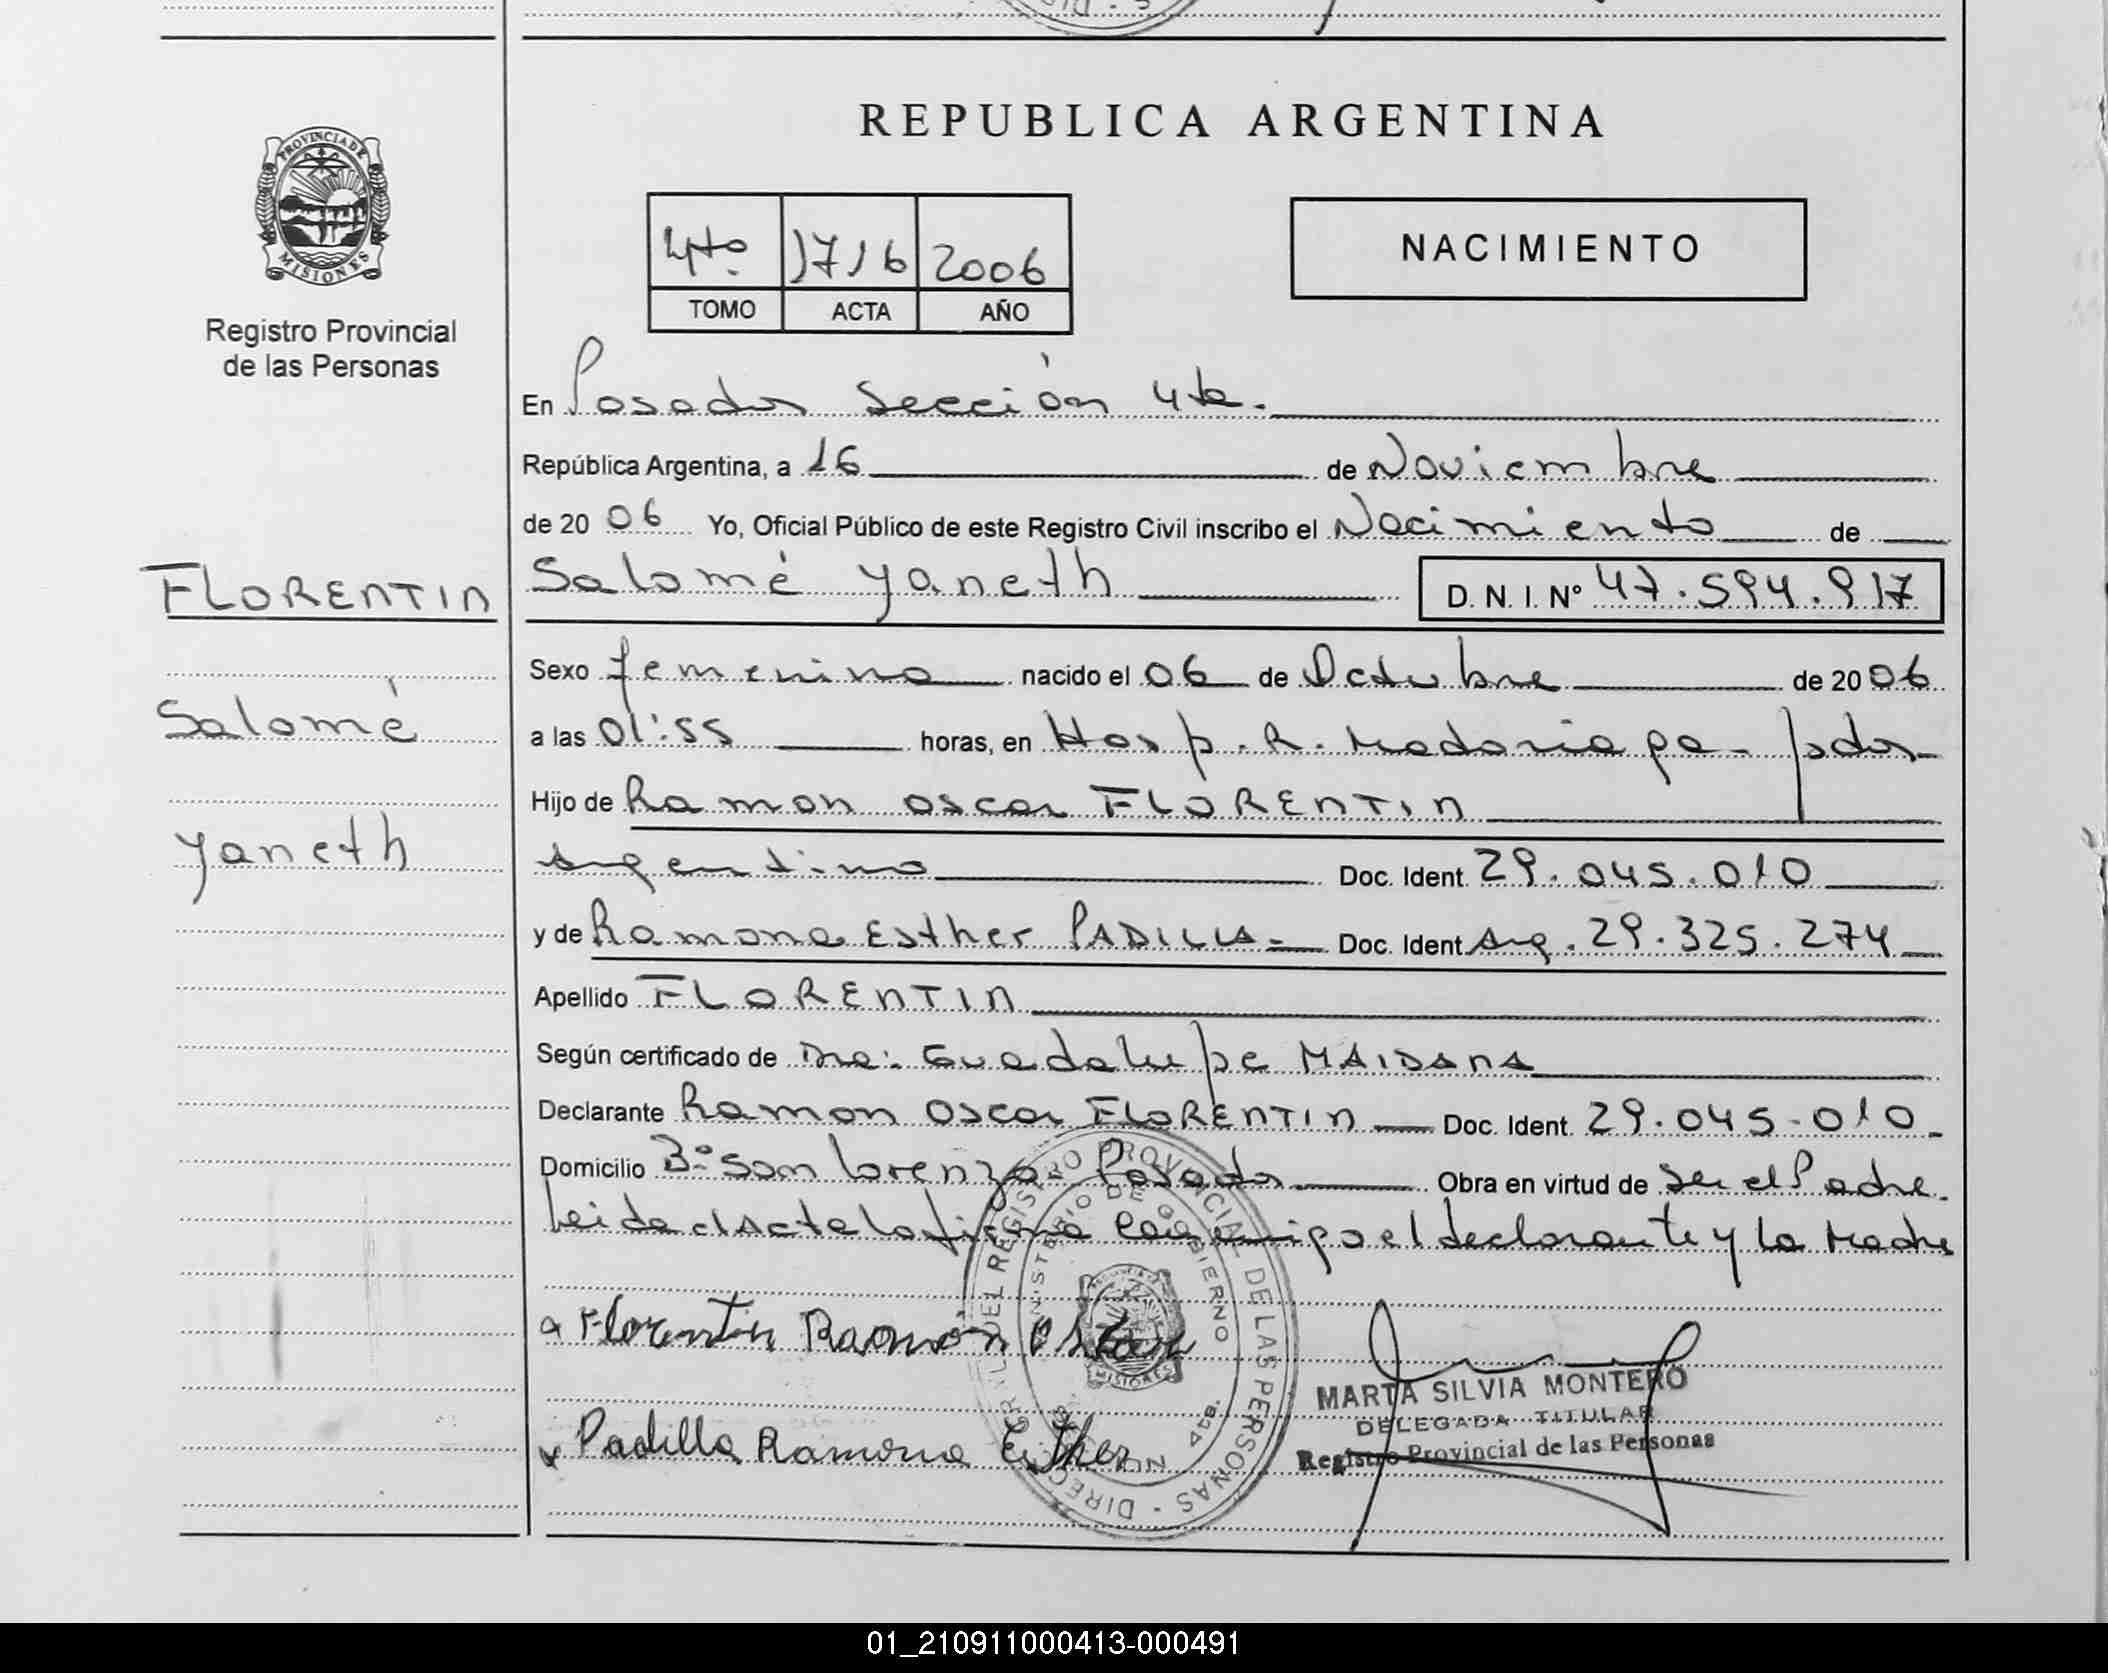 REPUBLICA ARGENTINA
PROVINCIA DE MISIONES
Registro Provincial
de las Personas
4to. 1716 2006
TOMO ACTA AÑO
NACIMIENTO
En Posadas Sección 4ta.
República Argentina, a 16 de Noviembre
de 20 06 Yo, Oficial Público de este Registro Civil inscribo el Nacimiento de
Salomé Yaneth D. N. I. Nº 47.594.917
FLORENTIN
Salomé
Yaneth
Sexo femenino nacido el 06 de Octubre de 20 06
a las 01:55 horas, en Hosp. R. Madariaga - pdas
Hijo de Ramon Oscar FLORENTIN
Argentino Doc. Ident. 29.045.010
y de Ramona Esther PADILLA Doc. Ident Arg. 29.325.274
Apellido FLORENTIN
Según certificado de Dra: Guadalupe MAIDANA
Declarante Ramon Oscar FLORENTIN Doc. Ident. 29.045.010
Domicilio Bº San Lorenzo Posadas Obra en virtud de ser el Padre.
Leida el Acta la firma conmigo el declarante y la Madre
Florentin Ramón Oscar
Padilla Ramona Esther
MINISTERIO DE GOBIERNO
DEL REGISTRO PROVINCIAL DE LAS PERSONAS
MISIONES
4ta.
MARTA SILVIA MONTERO
DELEGADA TITULAR
Registro Provincial de las Personas
01_210911000413-000491